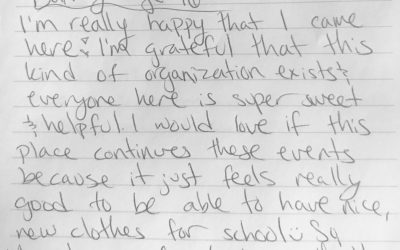 I'm really happy that I came
here & I'm grateful that this
kind of organization exists &
everyone here is super sweet
& helpful. I would love if this
place continues these events
because it just feels really
good to be able to have nice,
new clothes for school